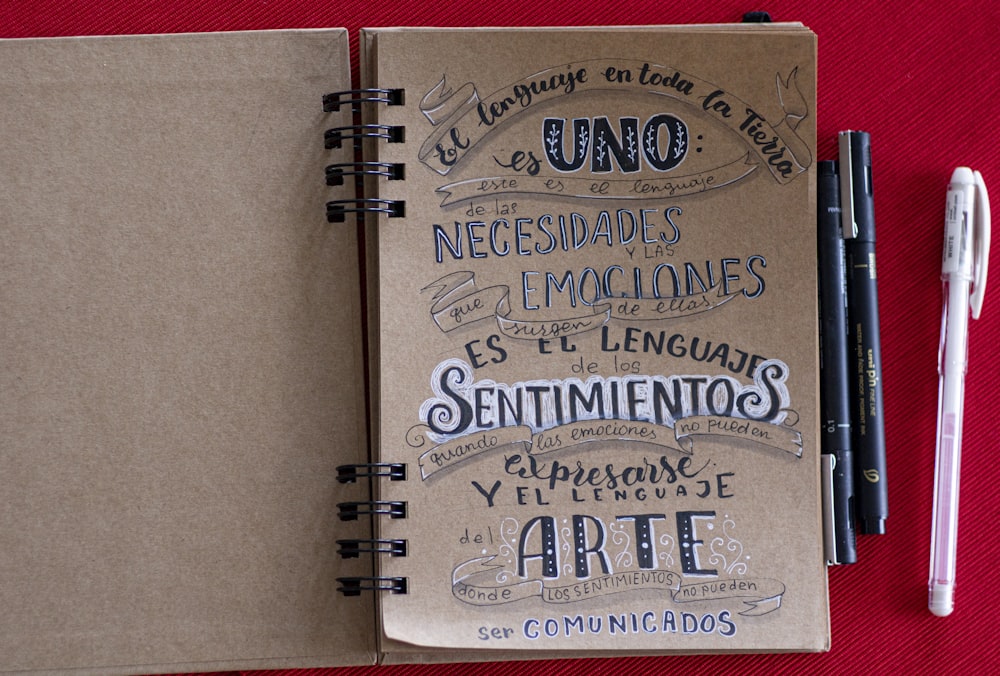 El lenguaje en toda la Tierra
es UNO:
este es el lenguaje
de las
NECESIDADES
Y LAS
EMOCIONES
que surgen de ellas
ES EL LENGUAJE
de los
SENTIMIENTOS
quando las emociones no pueden
expresarse
Y EL LENGUAJE
del
ARTE
donde LOS SENTIMIENTOS no pueden
ser COMUNICADOS
0.1
uni pin FINE LINE
WATER AND FADE PROOF, PIGMENT INK